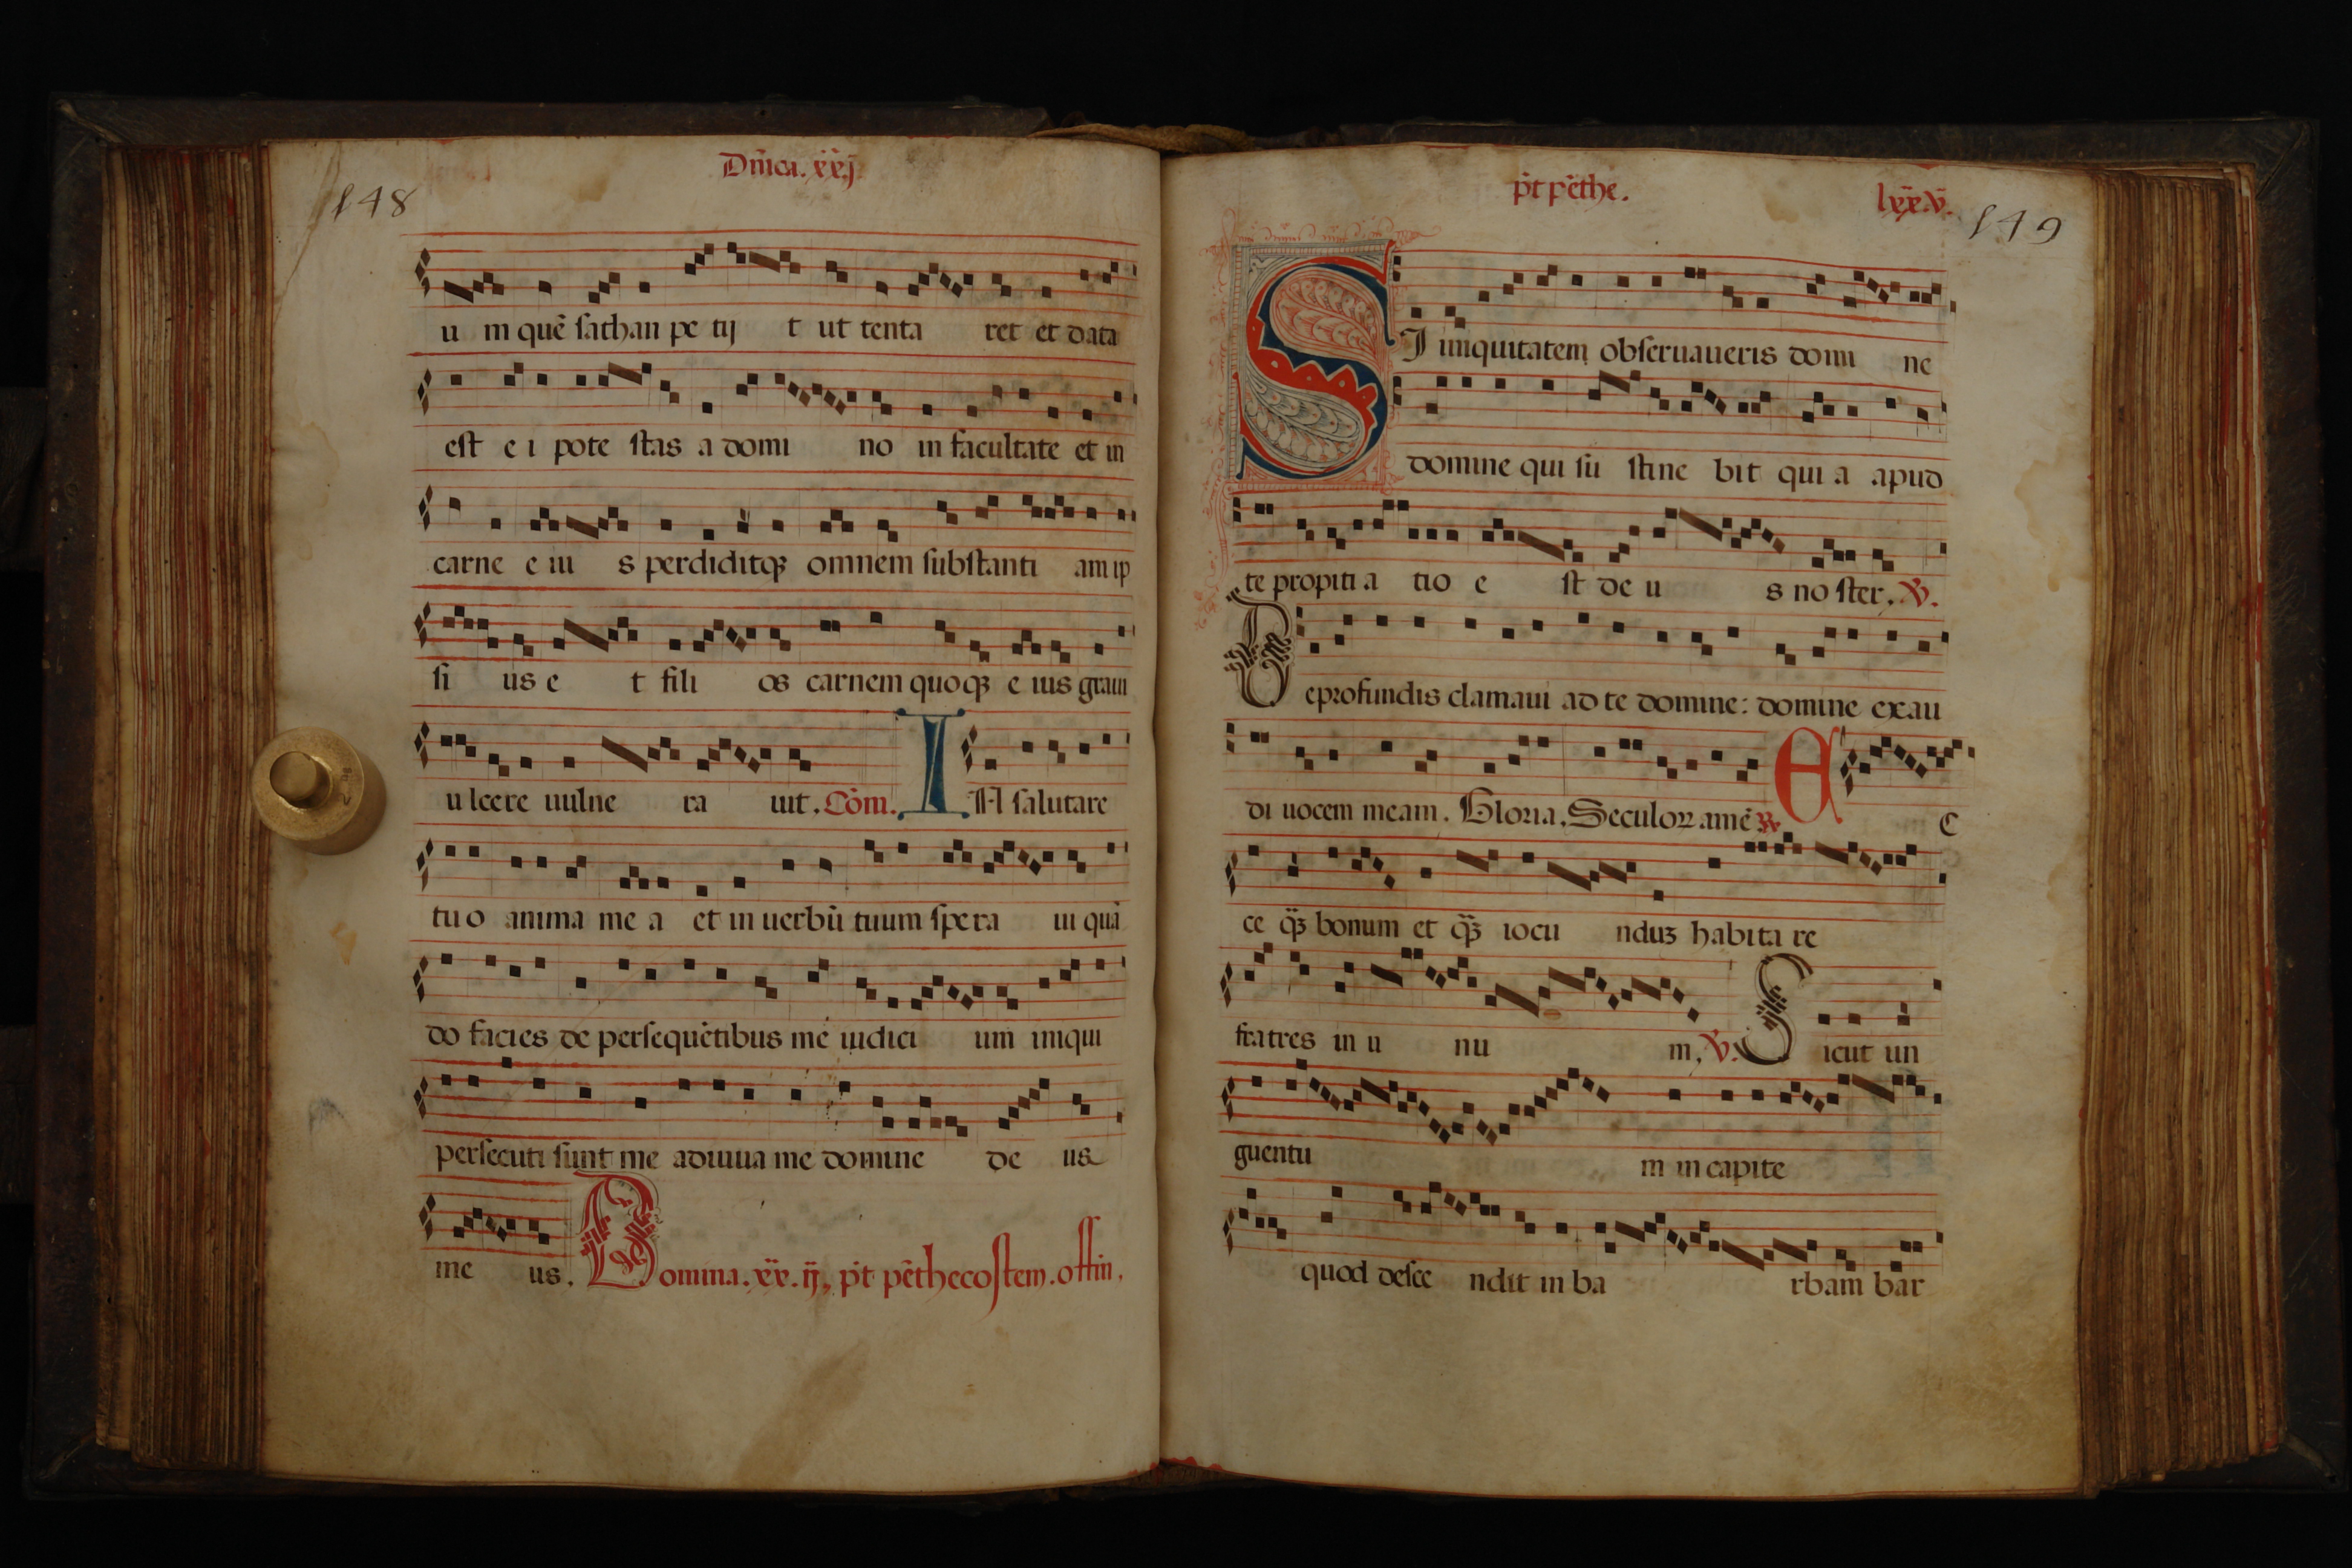 Dñica. xxj.
148
u m quẽ sathan pe tij t ut tenta ret et data
est e i pote stas a domi no in facultate et in
carne e iu s perdiditqꝫ omnem substanti am ip
si us e t fili os carnem quoqꝫ e ius graui
u lcere uulne ra uit. Cõm. I N salutare
tu o anima me a et in uerbũ tuum spe ra ui quã
do facies de persequẽtibus me iudici um iniqui
persecuti sunt me adiuua me domine de us
me us. Domina. xx. ij, pt̃ pẽthecostem. offin.
pt̃ pẽthe.
lxxv.
149
S I iniquitatem obseruaueris domi ne
domine qui su stine bit qui a apud
te propiti a tio e st de u s no ster. ℣.
De profundis clamaui ad te domine: domine exau
di uocem meam. Gloria. Seculoꝝ amẽ ℟ E C
ce qꝫ̃ bonum et qꝫ̃ iocu nduꝫ habita re
fratres in u nu m, ℣. S icut un
guentu m in capite
quod desce ndit in ba rbam bar